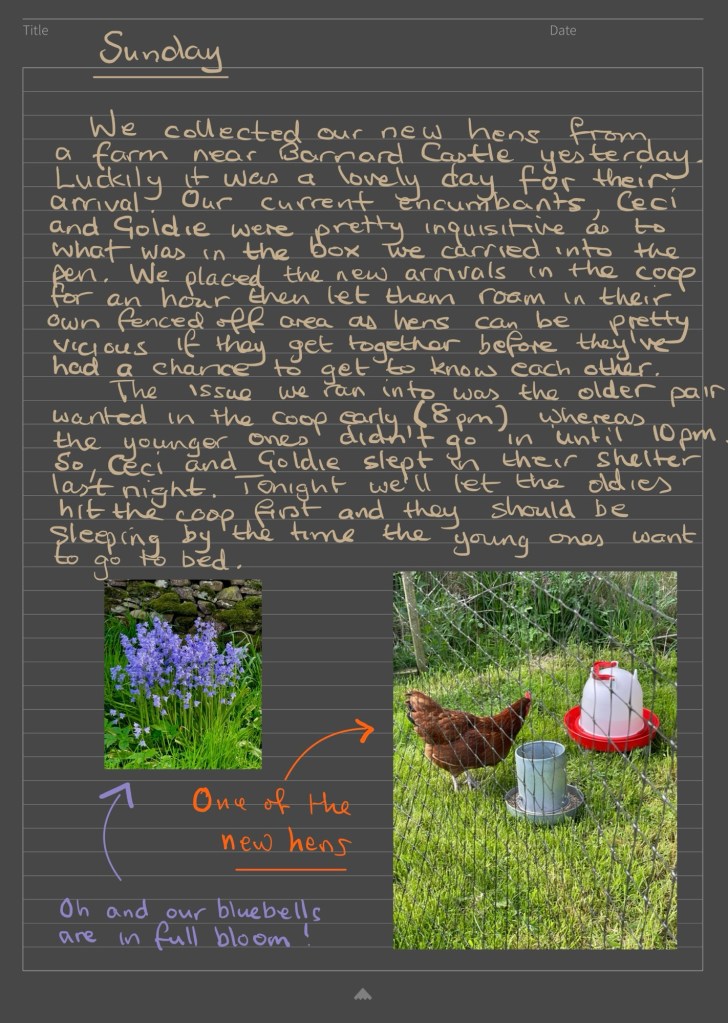 Title Date
Sunday
We collected our new hens from
a farm near Barnard Castle yesterday.
Luckily it was a lovely day for their
arrival. Our current encumbants, Ceci
and Goldie were pretty inquisitive as to
what was in the box we carried into the
pen. We placed the new arrivals in the coop
for an hour then let them roam in their
own fenced off area as hens can be pretty
vicious if they get together before they've
had a chance to get to know each other.
The issue we ran into was the older pair
wanted in the coop early (8pm) whereas
the younger ones didn't go in until 10pm.
So, Ceci and Goldie slept in their shelter
last night. Tonight we'll let the oldies
hit the coop first and they should be
sleeping by the time the young ones want
to go to bed.
One of the
new hens
Oh and our bluebells
are in full bloom!